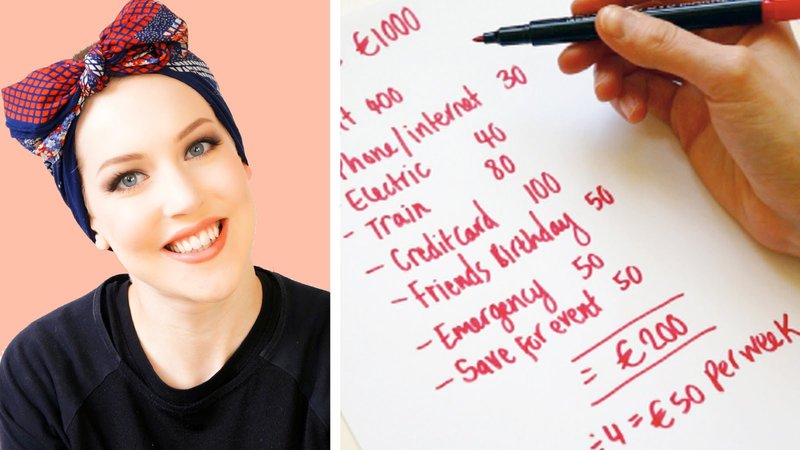 = €1000
400
Phone/internet 30
Electric 40
- Train 80
- Credit Card 100
- Friends Birthday 50
- Emergency 50
- Save for event 50
= €200
÷4 = €50 Per week